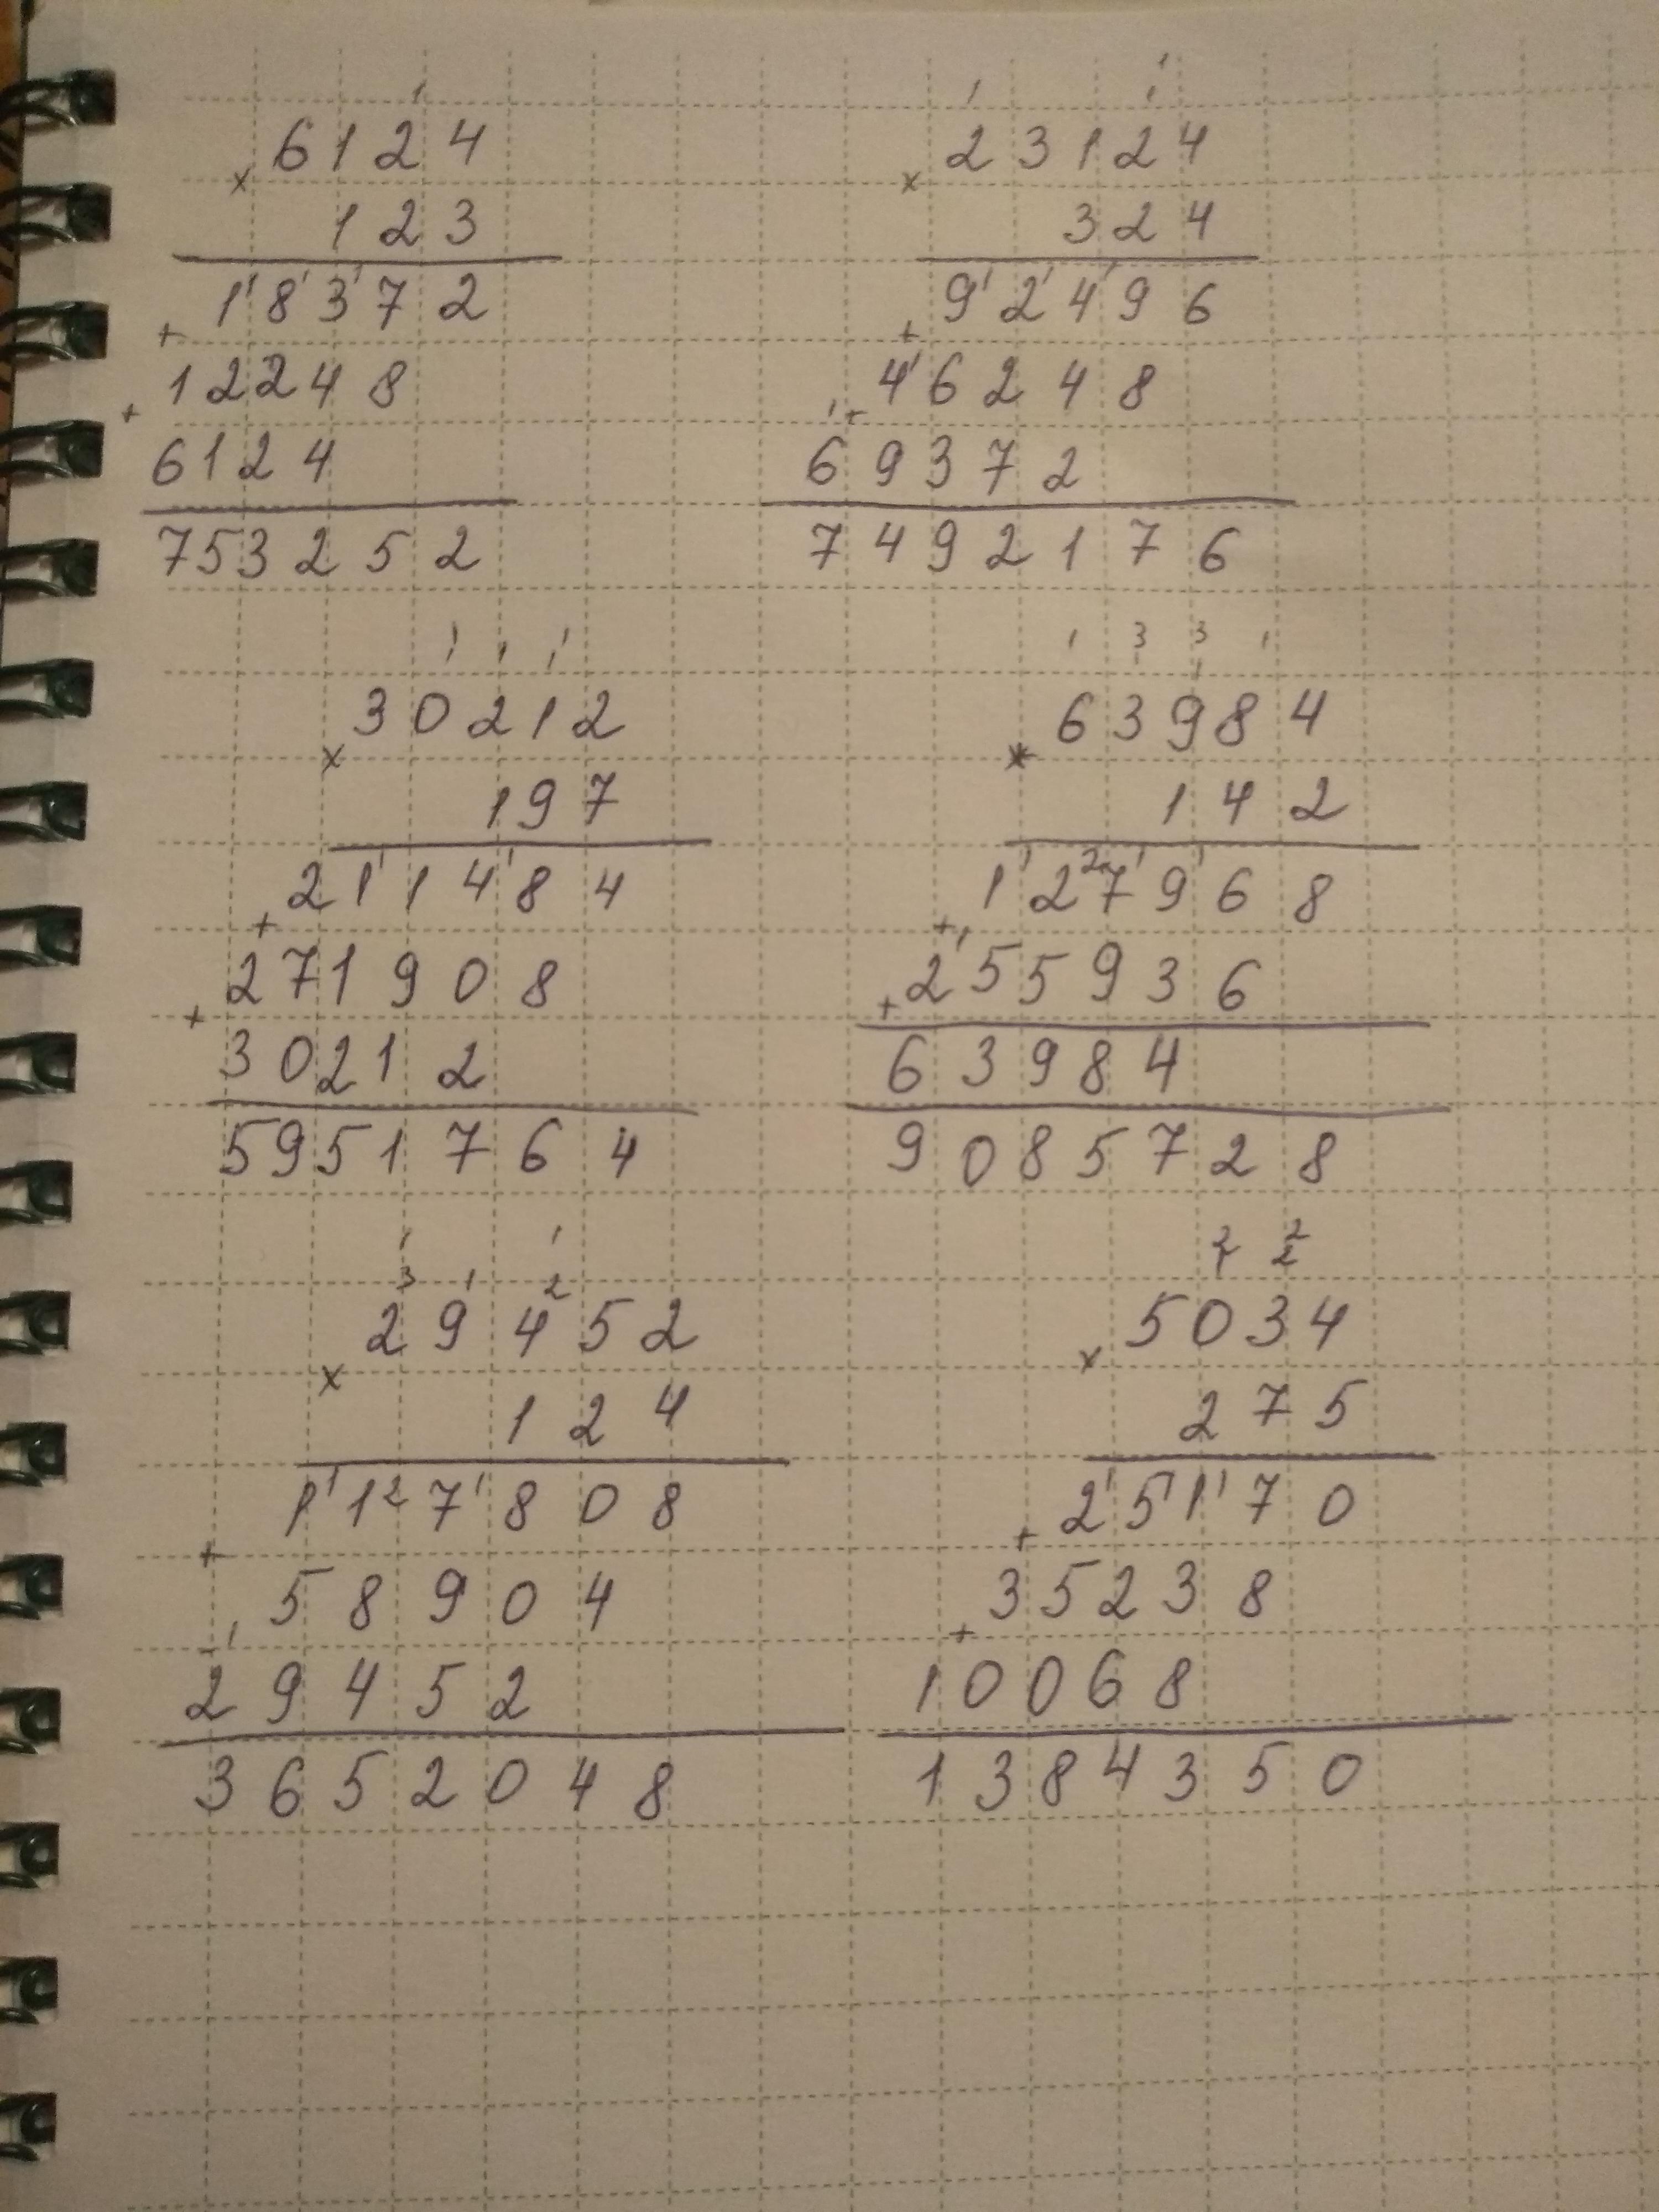 6124
× 123
18372
+ 12248
+ 6124
753252
23124
× 324
92496
+ 46248
+ 69372
7492176
30212
× 197
211484
+ 271908
+ 30212
5951764
63984
× 142
127968
+ 255936
+ 63984
9085728
29452
× 124
117808
+ 58904
29452
3652048
5034
× 275
25170
+ 35238
+ 10068
1384350